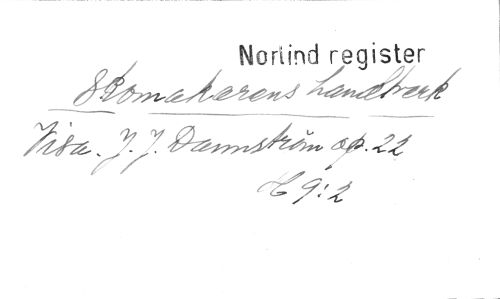 Norlind register
Skomakarens handtverk
Visa. J. J. Dannström op. 22
H 9:2